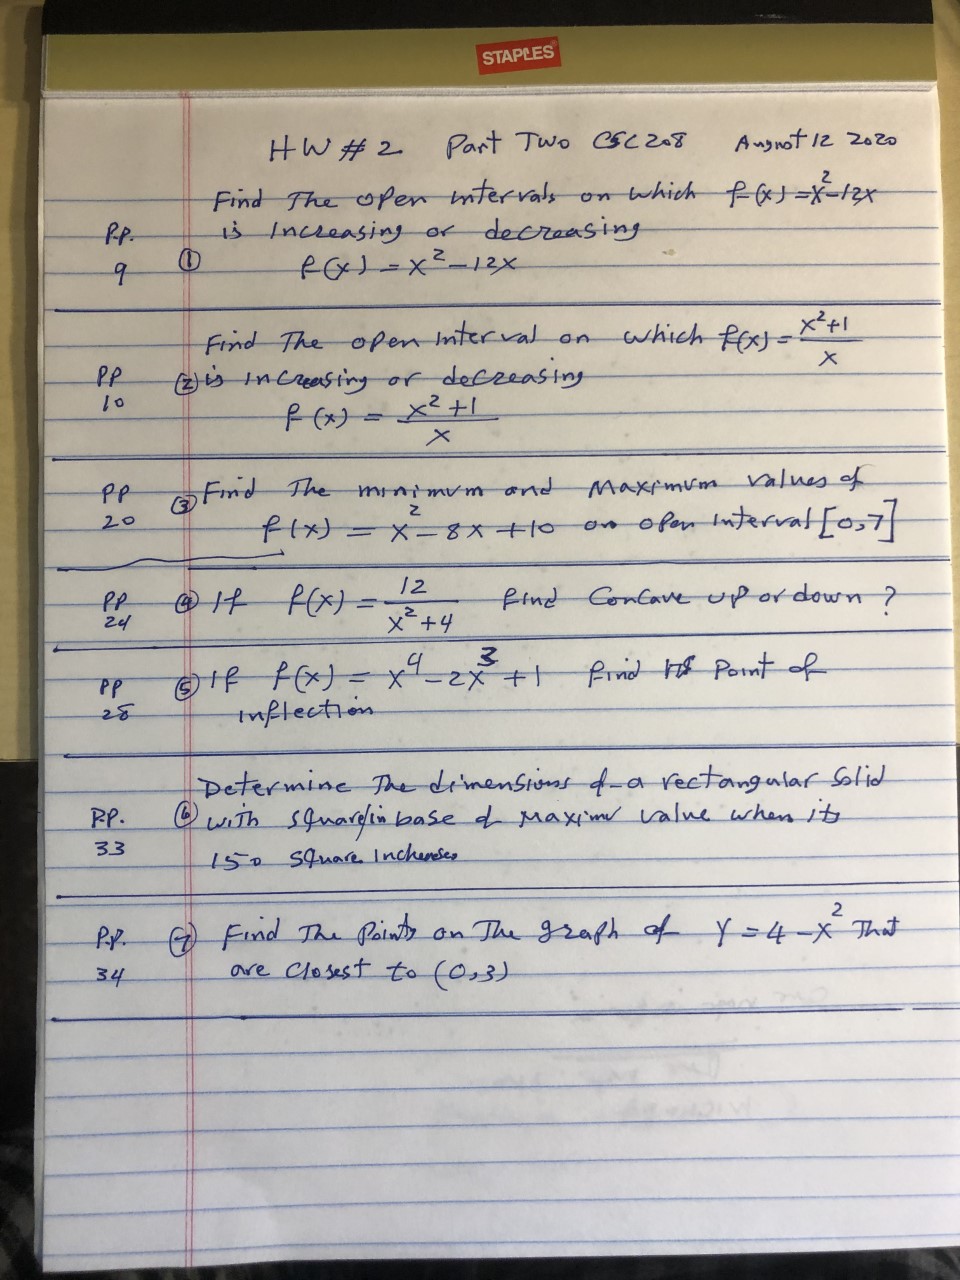 STAPLES
HW # 2 Part Two CSC 208 August 12 2020
Find The open intervals on which f(x) = x²-12x
P.P. is Increasing or decreasing
9 ① f(x) = x² - 12x
Find The open interval on which f(x) = x²+1 / x
PP ② is Increasing or decreasing
10 f(x) = x²+1 / x
PP ③ Find The minimum and Maximum values of
20 f(x) = x² - 8x + 10 on open Interval [0,7]
PP ④ If f(x) = 12 / x²+4 find Concave up or down ?
24
PP ⑤ If f(x) = x⁴ - 2x³ + 1 find its Point of
28 inflection
Determine The dimensions of a rectangular Solid
P.P. ⑥ with base of Maximu value when its
33 150 Square
P.P. ⑦ Find The Points on The graph of Y = 4 - x² That
34 are closest to (0,3)